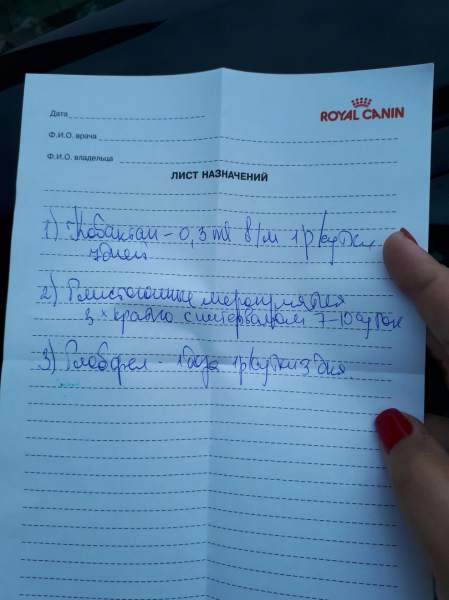 ROYAL CANIN
Дата
Ф.И.О. врача
Ф.И.О. владельца
ЛИСТ НАЗНАЧЕНИЙ
1) Кобактан - 0,3 мл в/м 1 р/сутки
7 дней
2) Глистогонные мероприятия
3 х кратно с интервалом 7-10 суток
3) Глобфел - 1 доза 1 р/сутки 3 дня.